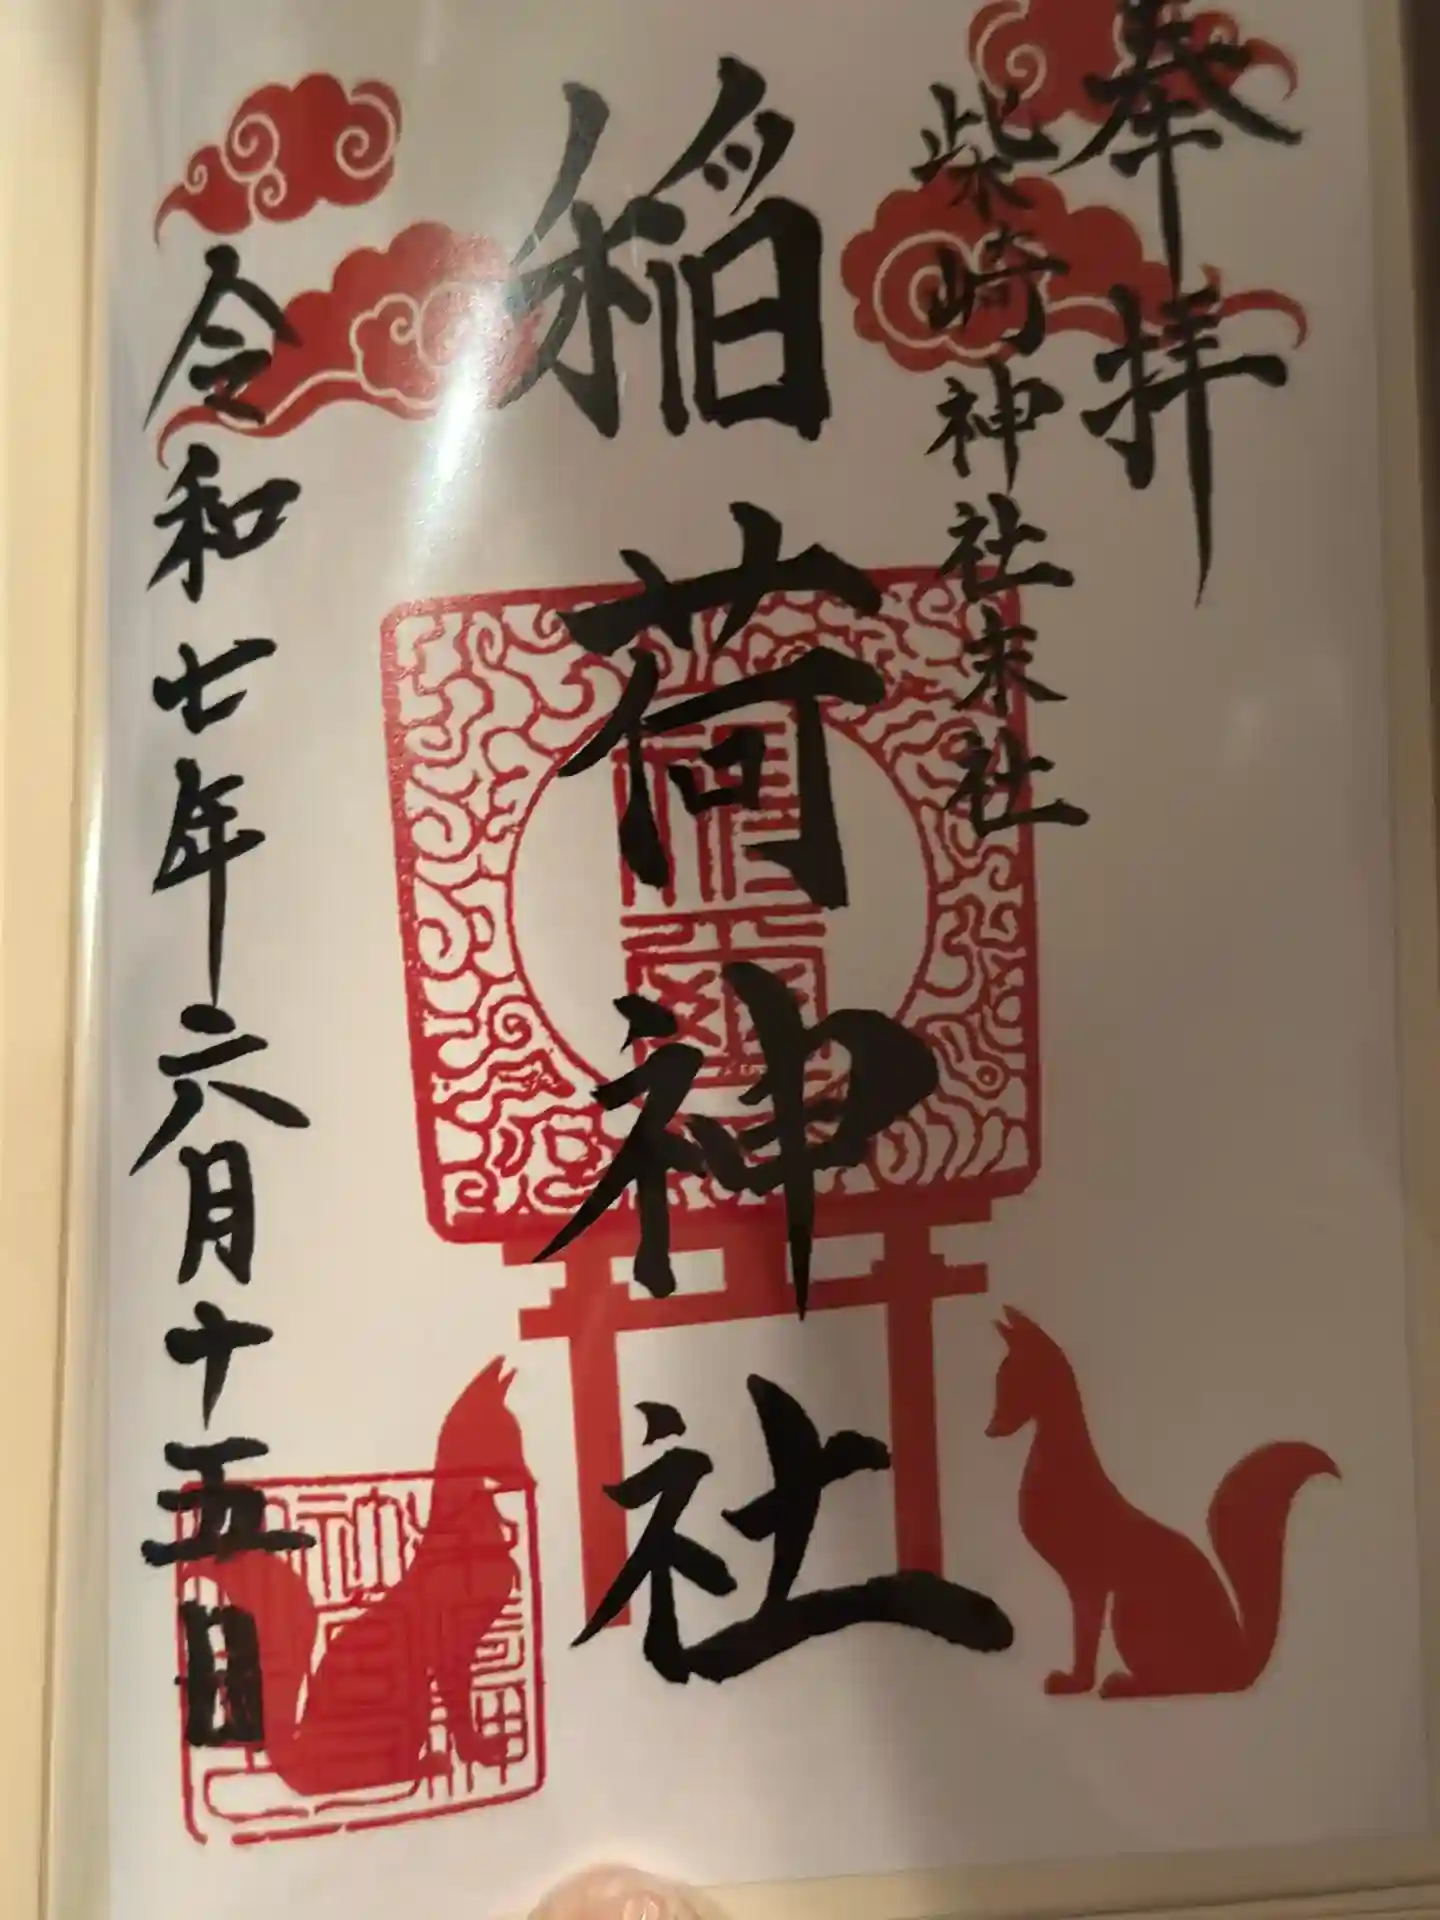 奉拝
柴崎神社末社
稲荷神社
令和七年六月十五日